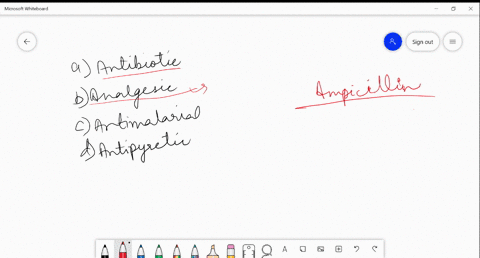 Microsoft Whiteboard
Sign out
a) Antibiotic
b) Analgesic
c) Antimalarial
d) Antipyretic
Ampicillin